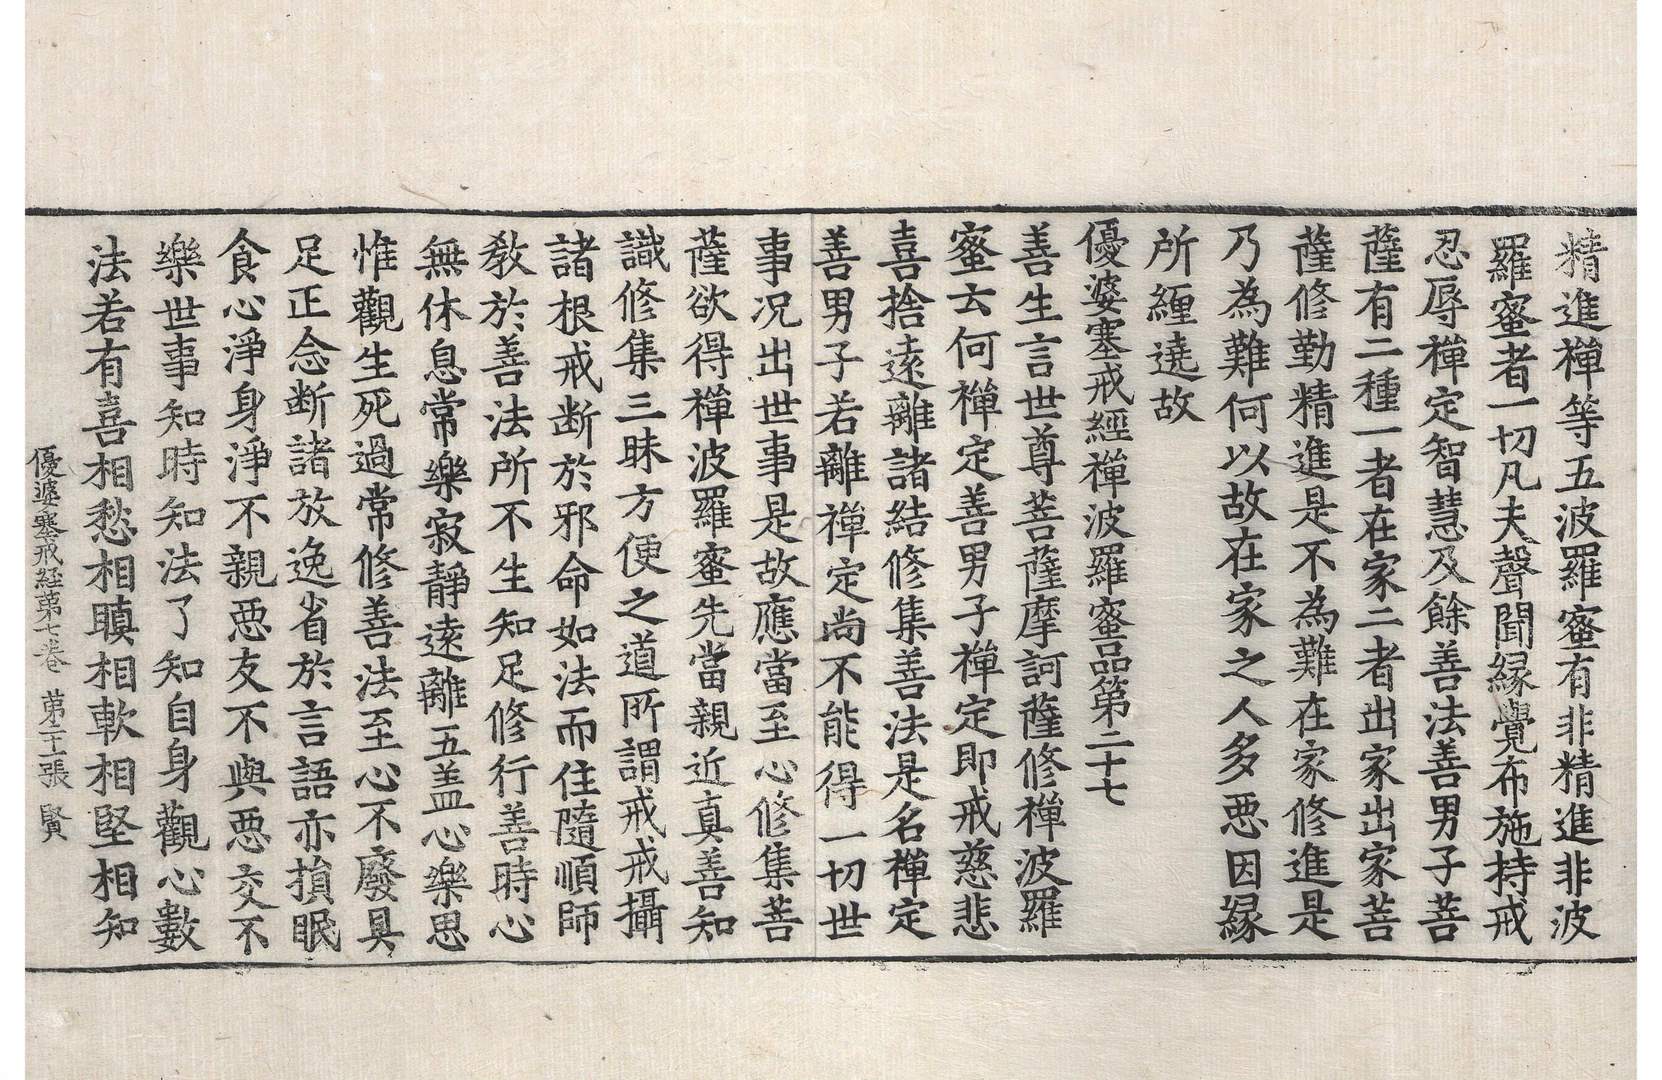 精進禪等五波羅蜜有非精進非波
羅蜜者一切凡夫聲聞緣覺布施持戒
忍辱禪定智慧及餘善法善男子菩
薩有二種一者在家二者出家出家菩
薩修勤精進是不為難在家修進是
乃為難何以故在家之人多惡因緣
所纏遶故
優婆塞戒經禪波羅蜜品第二十七
善生言世尊菩薩摩訶薩修禪波羅
蜜云何禪定善男子禪定即戒慈悲
喜捨遠離諸結修集善法是名禪定
善男子若離禪定尚不能得一切世
事況出世事是故應當至心修集菩
薩欲得禪波羅蜜先當親近真善知
識修集三昧方便之道所謂戒戒攝
諸根戒断於邪命如法而住隨順師
教於善法所不生知足修行善時心
無休息常樂寂靜遠離五盖心樂思
惟觀生死過常修善法至心不廢具
足正念断諸放逸省於言語亦損眠
食心淨身淨不親惡友不與惡交不
樂世事知時知法了知自身觀心數
法若有喜相愁相瞋相軟相堅相知
優婆塞戒経苐七卷　苐二十張　賢